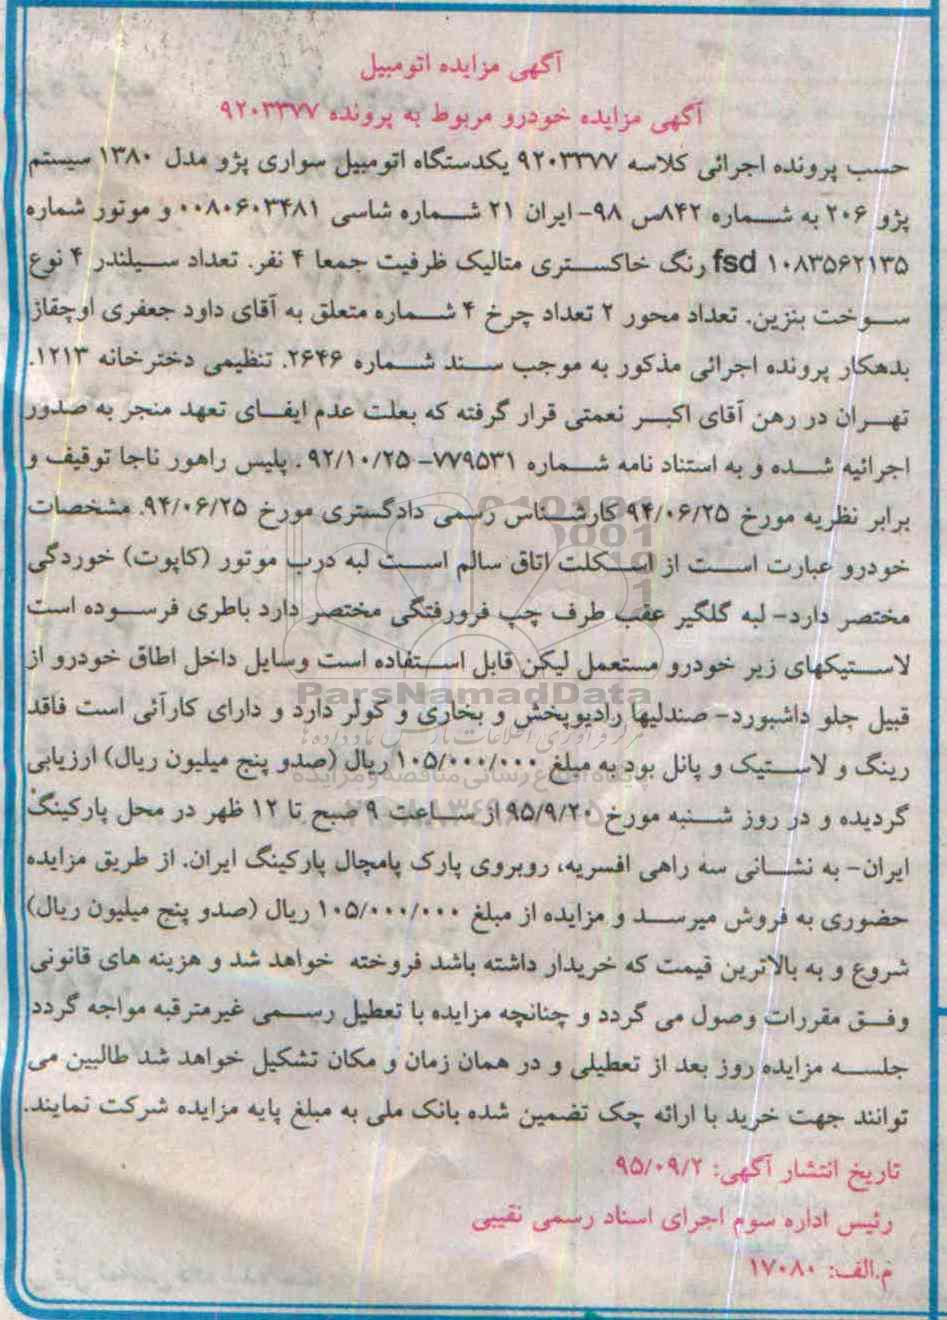 آگهی مزایده اتومبیل
آگهی مزایده خودرو مربوط به پرونده ۹۲۰۳۳۷۷
حسب پرونده اجرائی کلاسه ۹۲۰۳۳۷۷ یکدستگاه اتومبیل سواری پژو مدل ۱۳۸۰ سیستم
پژو ۲۰۶ به شماره ۸۴۲س ۹۸- ایران ۲۱ شماره شاسی ۰۰۸۰۶۰۳۴۸۱ و موتور شماره
fsd ۱۰۸۳۵۶۲۱۳۵ رنگ خاکستری متالیک ظرفیت جمعا ۴ نفر. تعداد سیلندر ۴ نوع
سوخت بنزین. تعداد محور ۲ تعداد چرخ ۴ شماره متعلق به آقای داود جعفری اوچقاز
بدهکار پرونده اجرائی مذکور به موجب سند شماره ۲۶۴۶. تنظیمی دخترخانه ۱۲۱۳.
تهران در رهن آقای اکبر نعمتی قرار گرفته که بعلت عدم ایفای تعهد منجر به صدور
اجرائیه شده و به استناد نامه شماره ۷۷۹۵۳۱- ۹۲/۱۰/۲۵ . پلیس راهور ناجا توقیف و
برابر نظریه مورخ ۹۴/۰۶/۲۵ کارشناس رسمی دادگستری مورخ ۹۴/۰۶/۲۵. مشخصات
خودرو عبارت است از اسکلت اتاق سالم است لبه درب موتور (کاپوت) خوردگی
مختصر دارد- لبه گلگیر عقب طرف چپ فرورفتگی مختصر دارد باطری فرسوده است
لاستیکهای زیر خودرو مستعمل لیکن قابل استفاده است وسایل داخل اطاق خودرو از
ParsNamadData
قبیل جلو داشبورد- صندلیها رادیوپخش و بخاری و کولر دارد و دارای کارآئی است فاقد
رینگ و لاستیک و پانل بود به مبلغ ۱۰۵/۰۰۰/۰۰۰ ریال (صدو پنج میلیون ریال) ارزیابی
گردیده و در روز شنبه مورخ ۹۵/۹/۲۰ از ساعت ۹ صبح تا ۱۲ ظهر در محل پارکینگ
ایران- به نشانی سه راهی افسریه، روبروی پارک پامچال پارکینگ ایران. از طریق مزایده
حضوری به فروش میرسد و مزایده از مبلغ ۱۰۵/۰۰۰/۰۰۰ ریال (صدو پنج میلیون ریال)
شروع و به بالاترین قیمت که خریدار داشته باشد فروخته خواهد شد و هزینه های قانونی
وفق مقررات وصول می گردد و چنانچه مزایده با تعطیل رسمی غیرمترقبه مواجه گردد
جلسه مزایده روز بعد از تعطیلی و در همان زمان و مکان تشکیل خواهد شد طالبین می
توانند جهت خرید با ارائه چک تضمین شده بانک ملی به مبلغ پایه مزایده شرکت نمایند.
تاریخ انتشار آگهی: ۹۵/۰۹/۲
رئیس اداره سوم اجرای اسناد رسمی نقیبی
م.الف: ۱۷۰۸۰